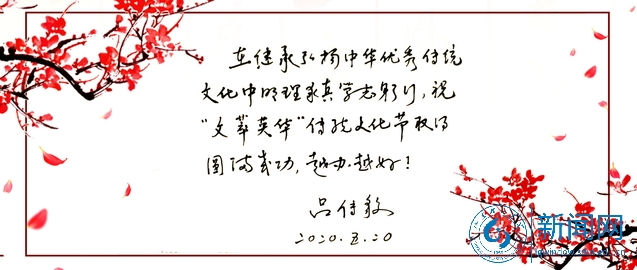 在继承弘扬中华优秀传统
文化中明理求真学志躬行，祝
“文萃英华”传统文化节取得
圆满成功，越办越好！
吕传毅
2020.5.20
新闻网